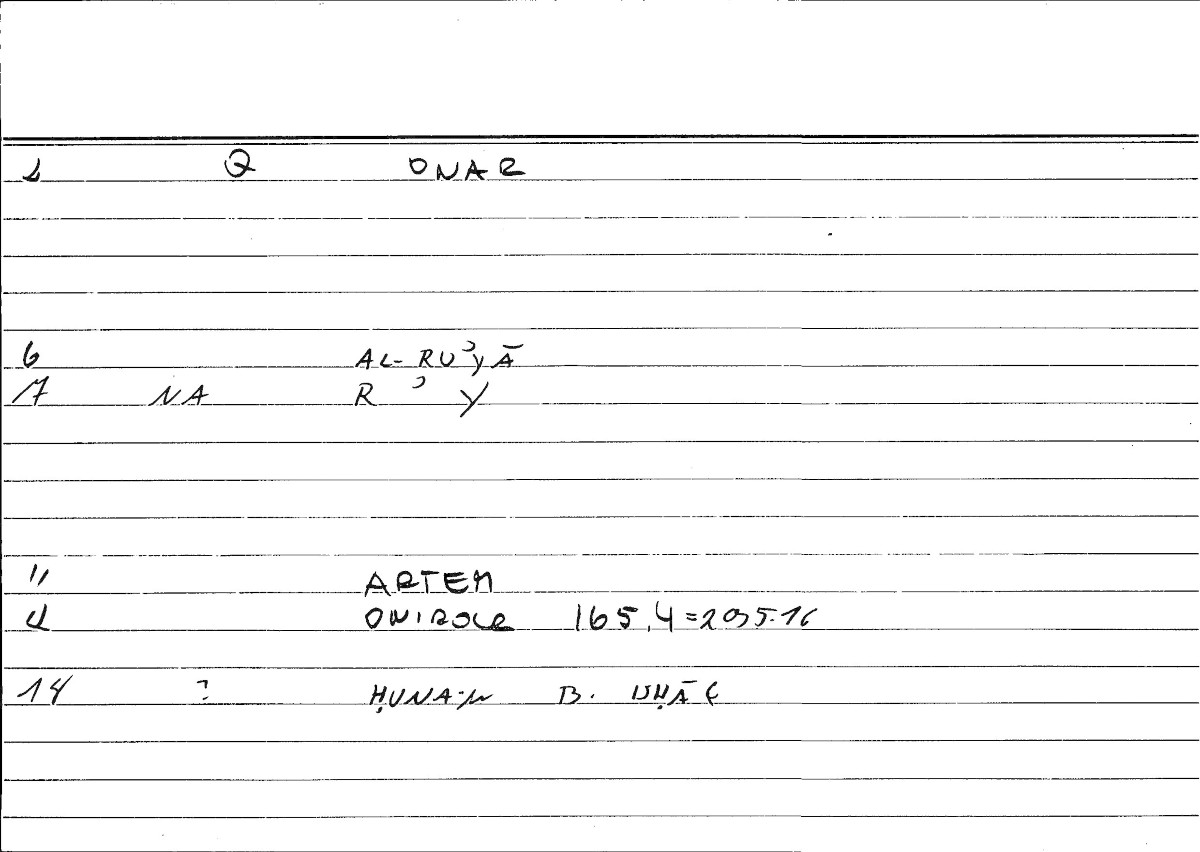 1 Q ONAR
6 AL-RUʾYĀ
7 NA R ʾ Y
11 ARTEM
ONIROCR 165,4=295.16
14 ? ḤUNAIN B. ISḤĀ